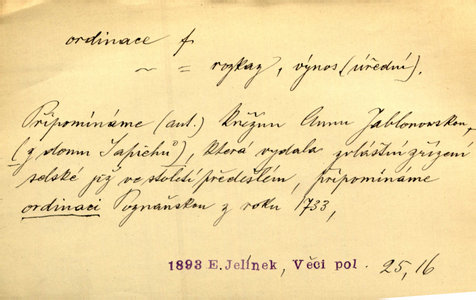 ordinace f
~ = rozkaz, výnos (úřední).
Připomínáme (aut.) kněžnu Annu Jablonovskou,
(z domu Sapiehů), která vydala zvláštní zřízení
selské již ve století předešlém, připomínáme
ordinaci Poznaňskou z roku 1733,
1893 E. Jelínek, Věci pol. 25, 16